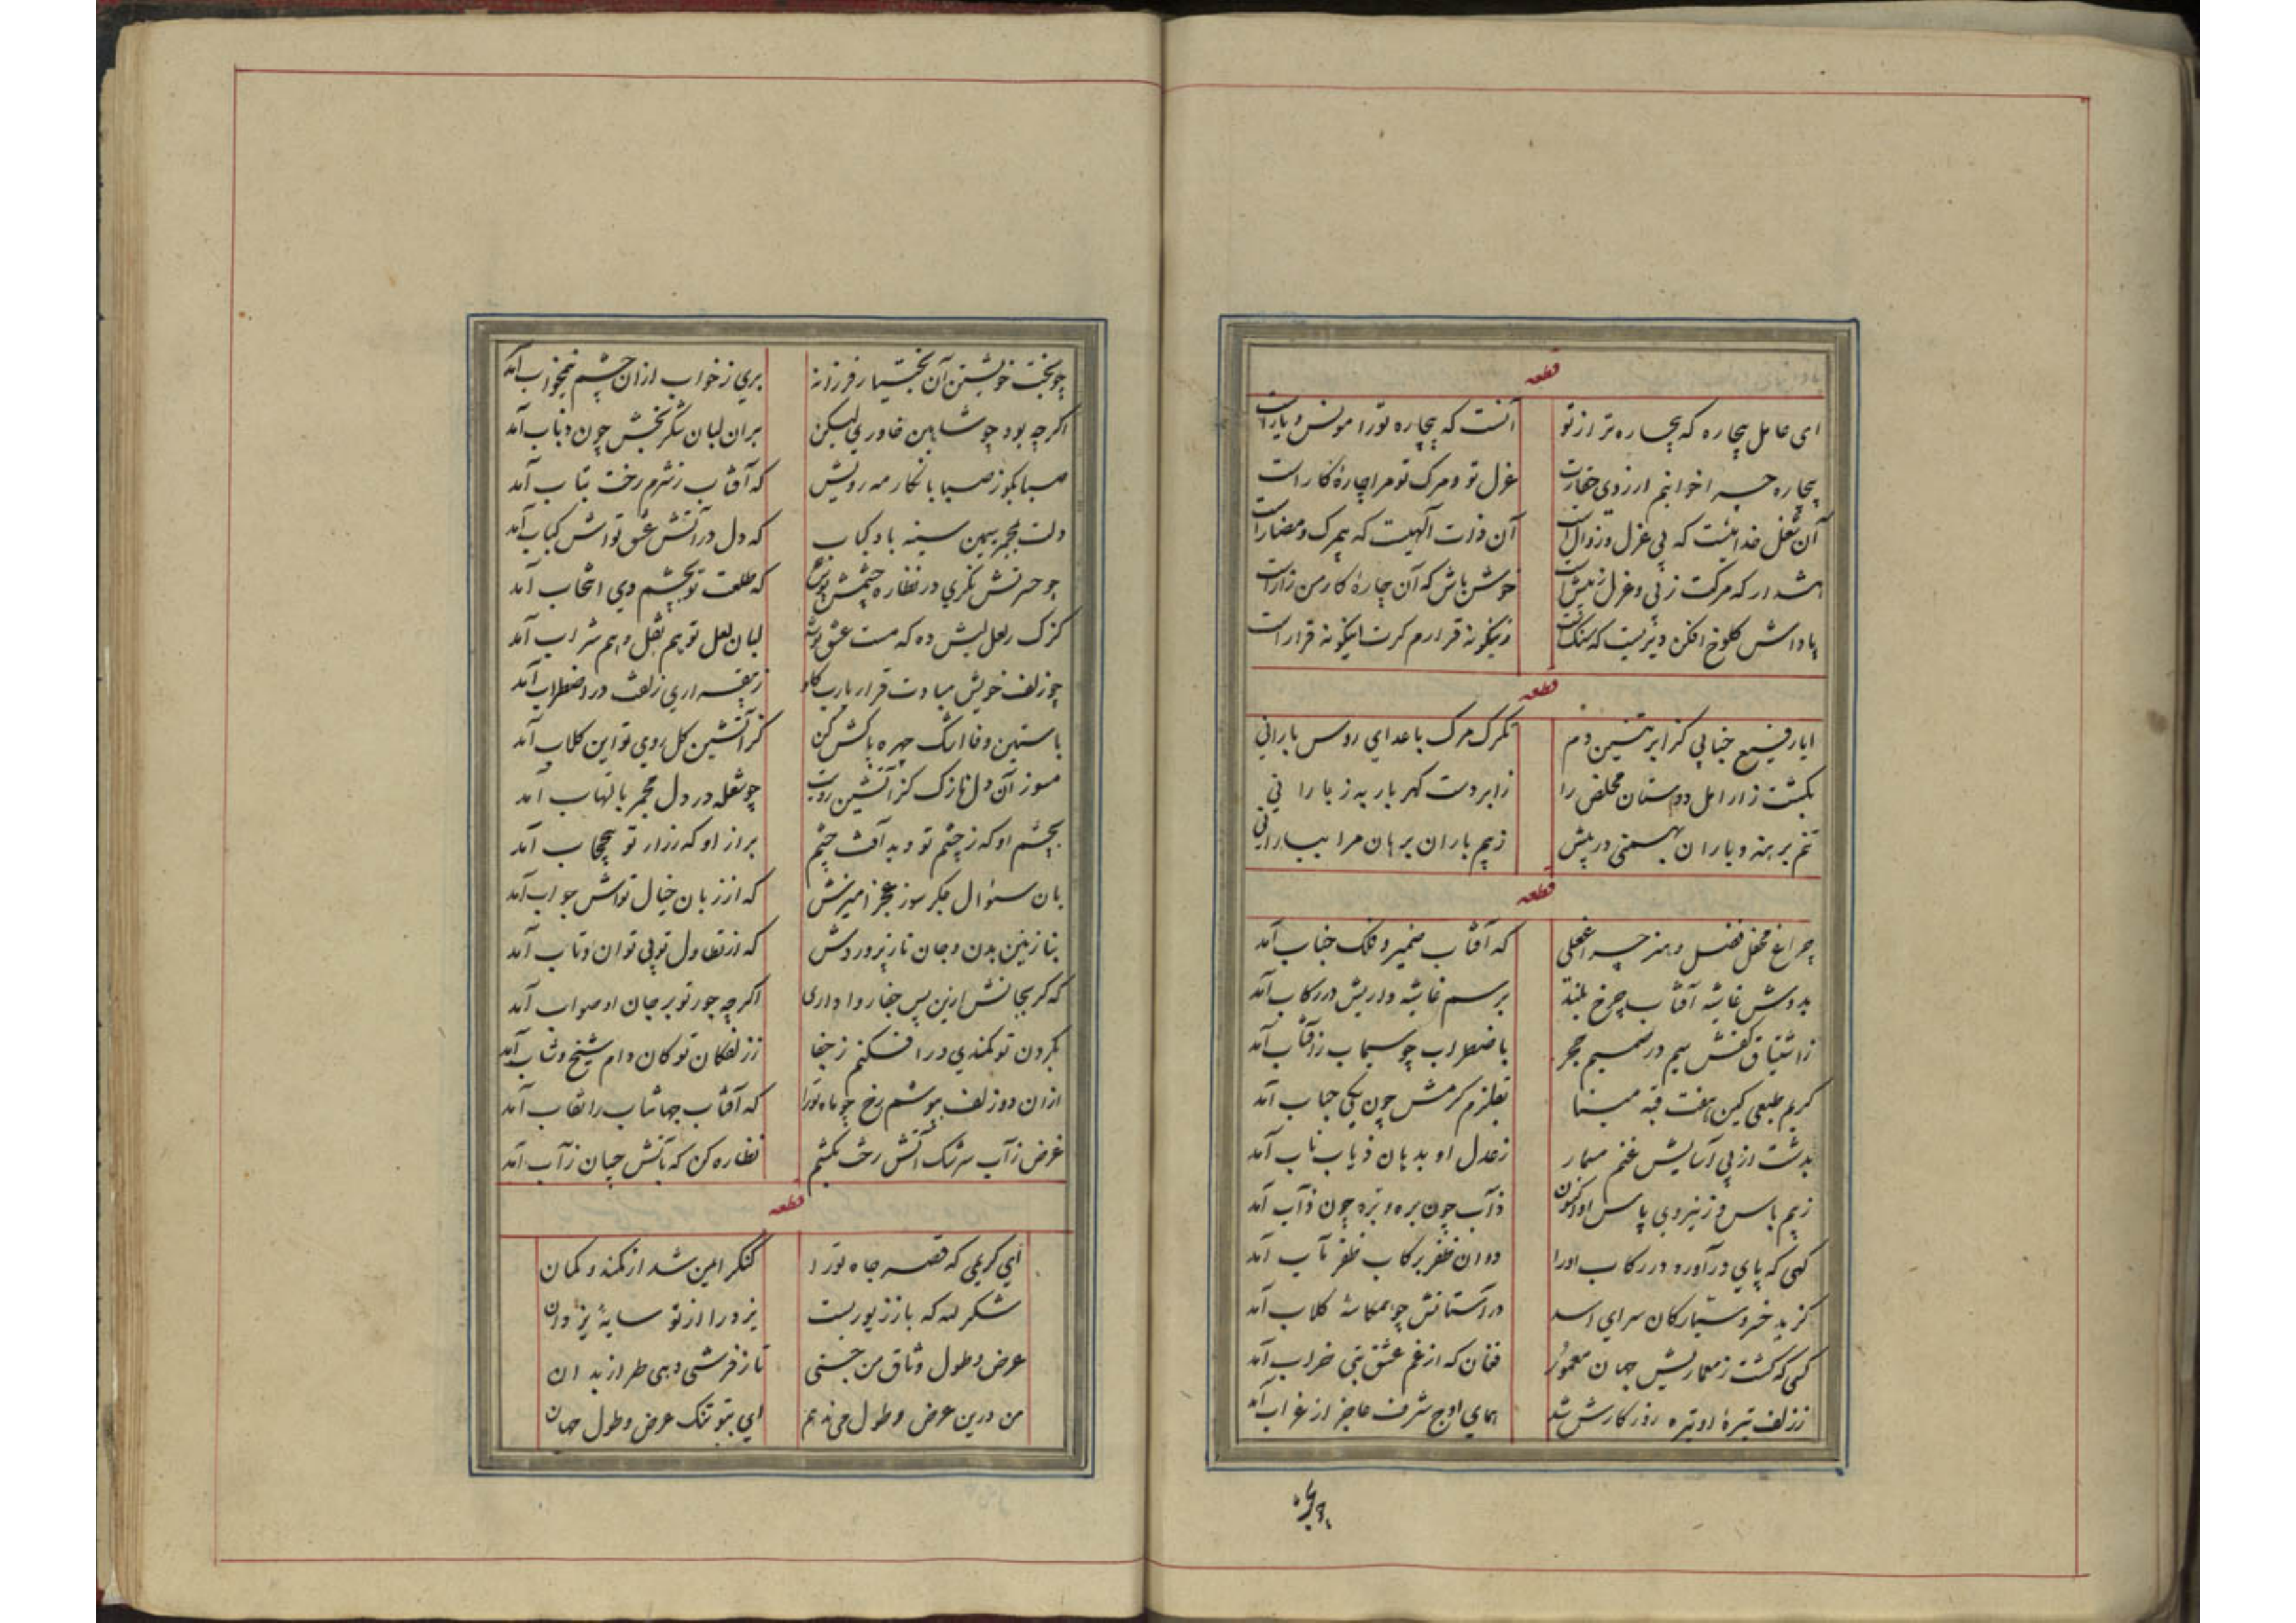 قطعه
ای عامل بیچاره که بیچاره تر از تو آنست که بیچاره تورا مونس و یار است
بیچاره چسرا خوانیم ار زوی حقارت عزل تو و مرک تو مرا چارهٔ کار است
آن شغل خدائیست که بی عزل و زوال است آن ذات آلهیت که بیمرک و مضار است
هشدار که مرکت ز پی و عزل ز پیش است خوش باش که آن چارهٔ کار من زار است
پاداش کلوخ افکن دیریست که سنک است زینکونه قرارم کرت اینکونه قرار است
قطعه
ایا رفیع جنابی کز ابر تیغ دم تکرک مرک باعدای روس بارانی
بکشت زار امل دوستان مخلص را ز ابر دست کهر بار به ز بارانی
تنم برهنه و باران بهمنی در پیش ز بیم باران برهان مرا ببارانی
قطعه
چراغ محفل فضل و هنر چراغعلی که آفتاب ضمیر و فلک جناب آمد
بدوش غاشیه آفتاب چرخ بلند برسم غاشیه داریش در رکاب آمد
ز اشتیاق کفش سیم در صمیم حجر باضطراب چو سیماب ز آفتاب آمد
کریم طبعی کین هفت قبه مینا بقلزم کرمش چون یکی حباب آمد
بدشت از پی آسایش غنم مسمار ز عدل او بدهان ذیاب ناب آمد
ز بیم باس و ز نیروی پاس او اکنون ذآب چون بره و بره چون ذآب آمد
کهی که پای درآورد در رکاب اورا دوان ظفر برکاب ظفر مآب آمد
کزید خسرو سیارکان سرای اسد در آستانش چو همکاسهٔ کلاب آمد
کسی که کشت ز معماریش جهان معمور فغان که از غم عشق بتی خراب آمد
ز زلف تیرهٔ او تیره روزکارش شد همای اوج شرف عاجز از غراب آمد
چو بخت
چو بخت خویشتن آن بختیار فرزانه بری ز خواب از ان چشم نیمخواب آمد
اکرچه بود چو شاهین خاوری لیکن بران لبان شکر بخش چون ذباب آمد
صبا بکو ز صبا با نکار مه رویش که آفتاب ز شرم رخت بتاب آمد
دلت مجمر سیمین سینه باد کباب که دل در آتش عشق تواش کباب آمد
چو حسرتش نکری در نظاره چشمش که طلعت تو بچشم وی انتخاب آمد
کزک ز لعل لبش ده که مست عشق لبان لعل تو هم نقل و هم شراب آمد
چو زلف خویش مبادت قرار یارب ز بیقراری زلفت در اضطراب آمد
باستین وفا اشک چهره پاکش کن کز آتشین کل روی تو این کلاب آمد
مسوز آن دل نازک کز آتشین رویت چو شعله در دل مجمر بالتهاب آمد
بچشم او که ز چشم تو دید آفت چشم براز او که ز راز تو بیحجاب آمد
بان سئوال جکر سوز عجز آمیزش که از زبان خیال تواش جواب آمد
بنازنین بدن و جان ناز پروردش که از تطاول تو بی توان و تاب آمد
که کر بجانش ازین پس جفا روا داری اکرچه جور تو بر جان او صواب آمد
بکردن تو کمندی در افکنم ز جفا ز زلفکان تو کان دام شیخ و شاب آمد
ازان دو زلف بپوشم رخ چو ماه تورا که آفتاب جهانتاب را نقاب آمد
غرض ز آب سرشک آتش رخت بکشم نظاره کن که بآتش چسان ز آب آمد
قطعه
ای کریمی که قصر جاه تورا کنکر ایمن شد از کمند و کمان
شکر لله که باز زیور بست یزد را از تو سایهٔ یزدان
عرض و طول وثاق من جستی تا ز فرشی دهی طراز بدان
من درین عرض و طول می ندهم ای بتو تنک عرض و طول جهان